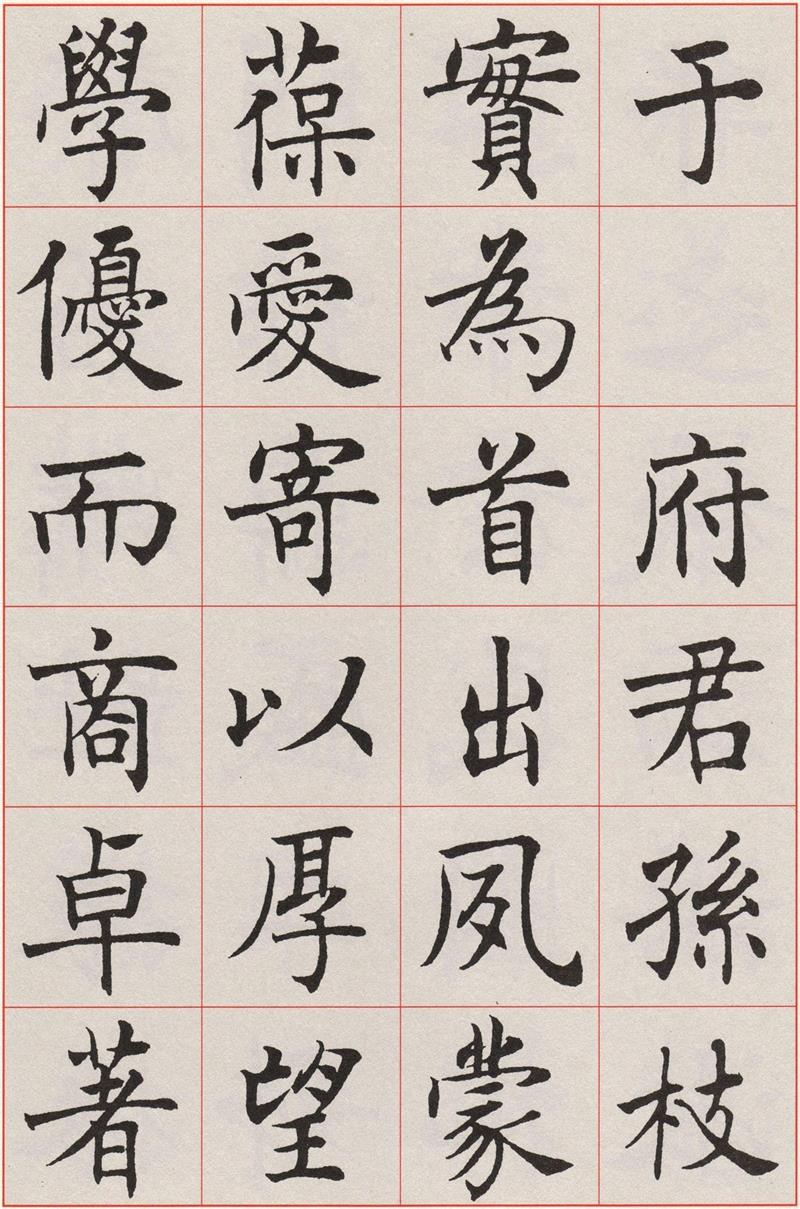 于府君孫枝
實為首出夙蒙
葆愛寄以厚望
學優而商卓著